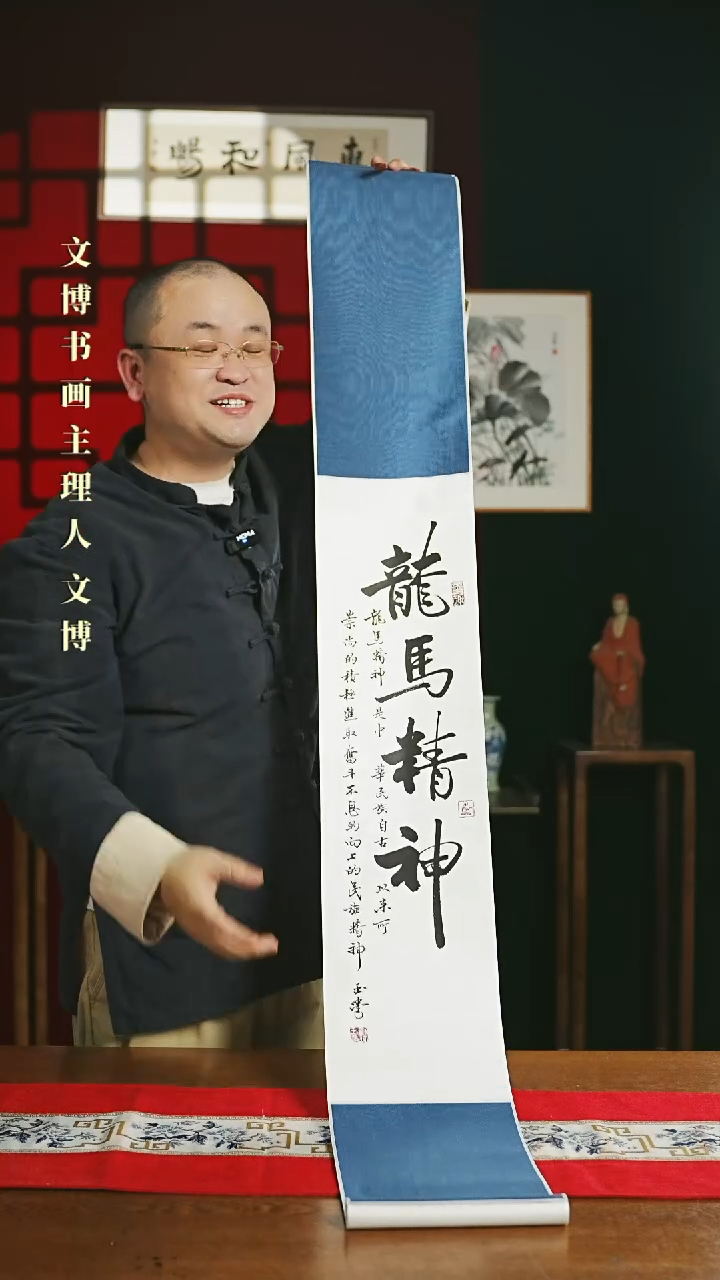 惠風和暢
文博书画主理人 文博
龍馬精神
龍馬精神 是中 華民族自古 以来所
崇尚的積極進取奮斗不息的向上的民族精神